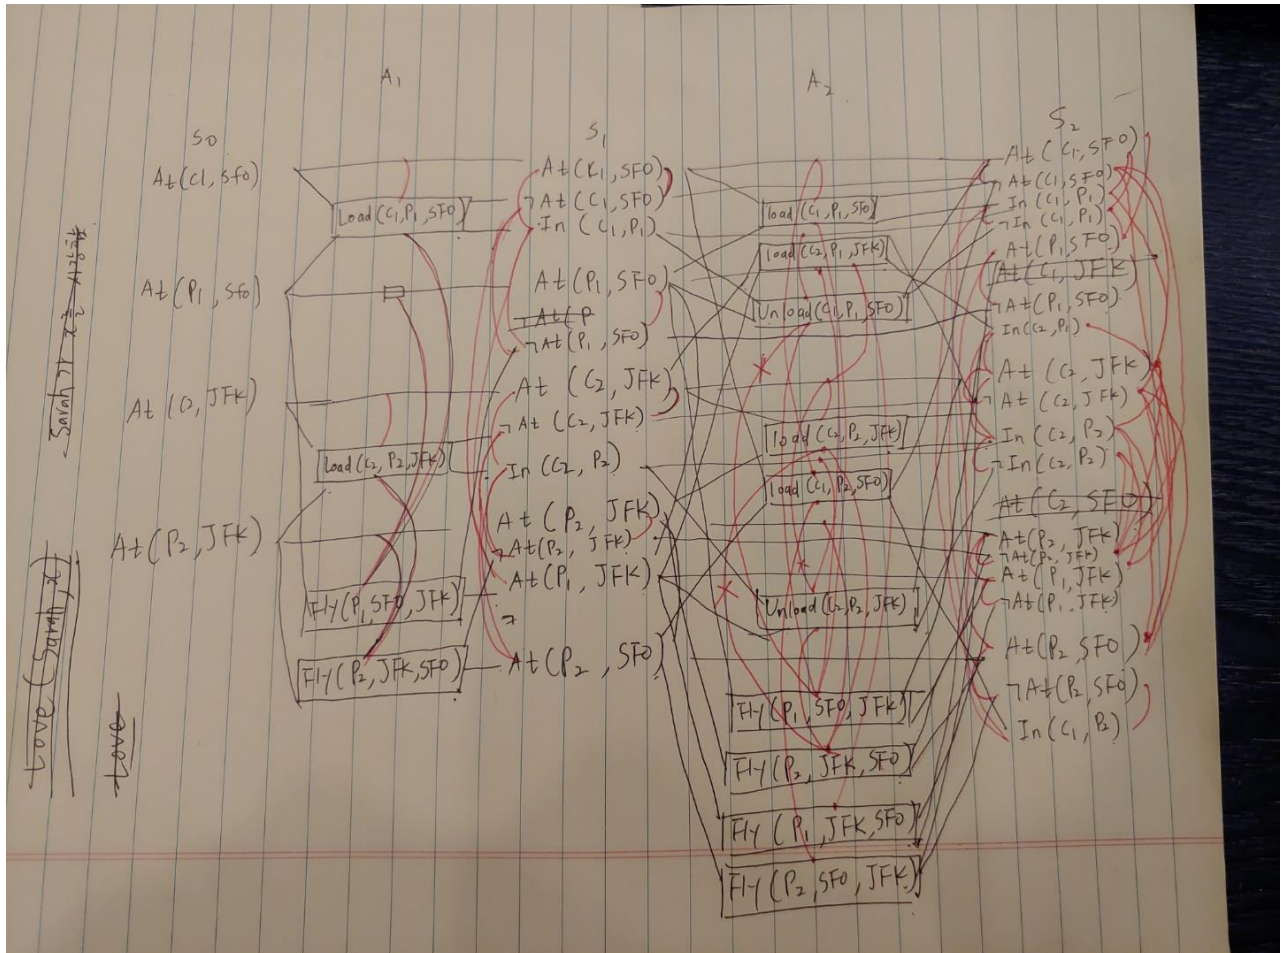 A₁
A₂
S₀
S₁
S₂
At(C1, sfo)
At(P₁, sfo)
At(C₂, JFK)
At(P₂, JFK)
Load(C₁,P₁,SFO)
Load(C₂,P₂,JFK)
Fly(P₁,SFO,JFK)
Fly(P₂,JFK,SFO)
At(C₁,SFO)
¬At(C₁,SFO)
In(C₁,P₁)
At(P₁,SFO)
At(P
¬At(P₁,SFO)
At(C₂,JFK)
¬At(C₂,JFK)
In(C₂,P₂)
At(P₂,JFK)
¬At(P₂,JFK)
At(P₁,JFK)
¬
At(P₂,SFO)
load(C₁,P₁,SFO)
load(C₂,P₁,JFK)
Unload(C₁,P₁,SFO)
load(C₂,P₂,JFK)
load(C₁,P₂,SFO)
Unload(C₂,P₂,JFK)
Fly(P₁,SFO,JFK)
Fly(P₂,JFK,SFO)
Fly(P₁,JFK,SFO)
Fly(P₂,SFO,JFK)
At(C₁,SFO)
¬At(C₁,SFO)
In(C₁,P₁)
¬In(C₁,P₁)
At(P₁,SFO)
At(C₁,JFK)
¬At(P₁,SFO)
In(C₂,P₁)
At(C₂,JFK)
¬At(C₂,JFK)
In(C₂,P₂)
¬In(C₂,P₂)
At(C₂,SFO)
At(P₂,JFK)
¬At(P₂,JFK)
At(P₁,JFK)
¬At(P₁,JFK)
At(P₂,SFO)
¬At(P₂,SFO)
In(C₁,P₂)
Sarah
love(Sarah,x)
love